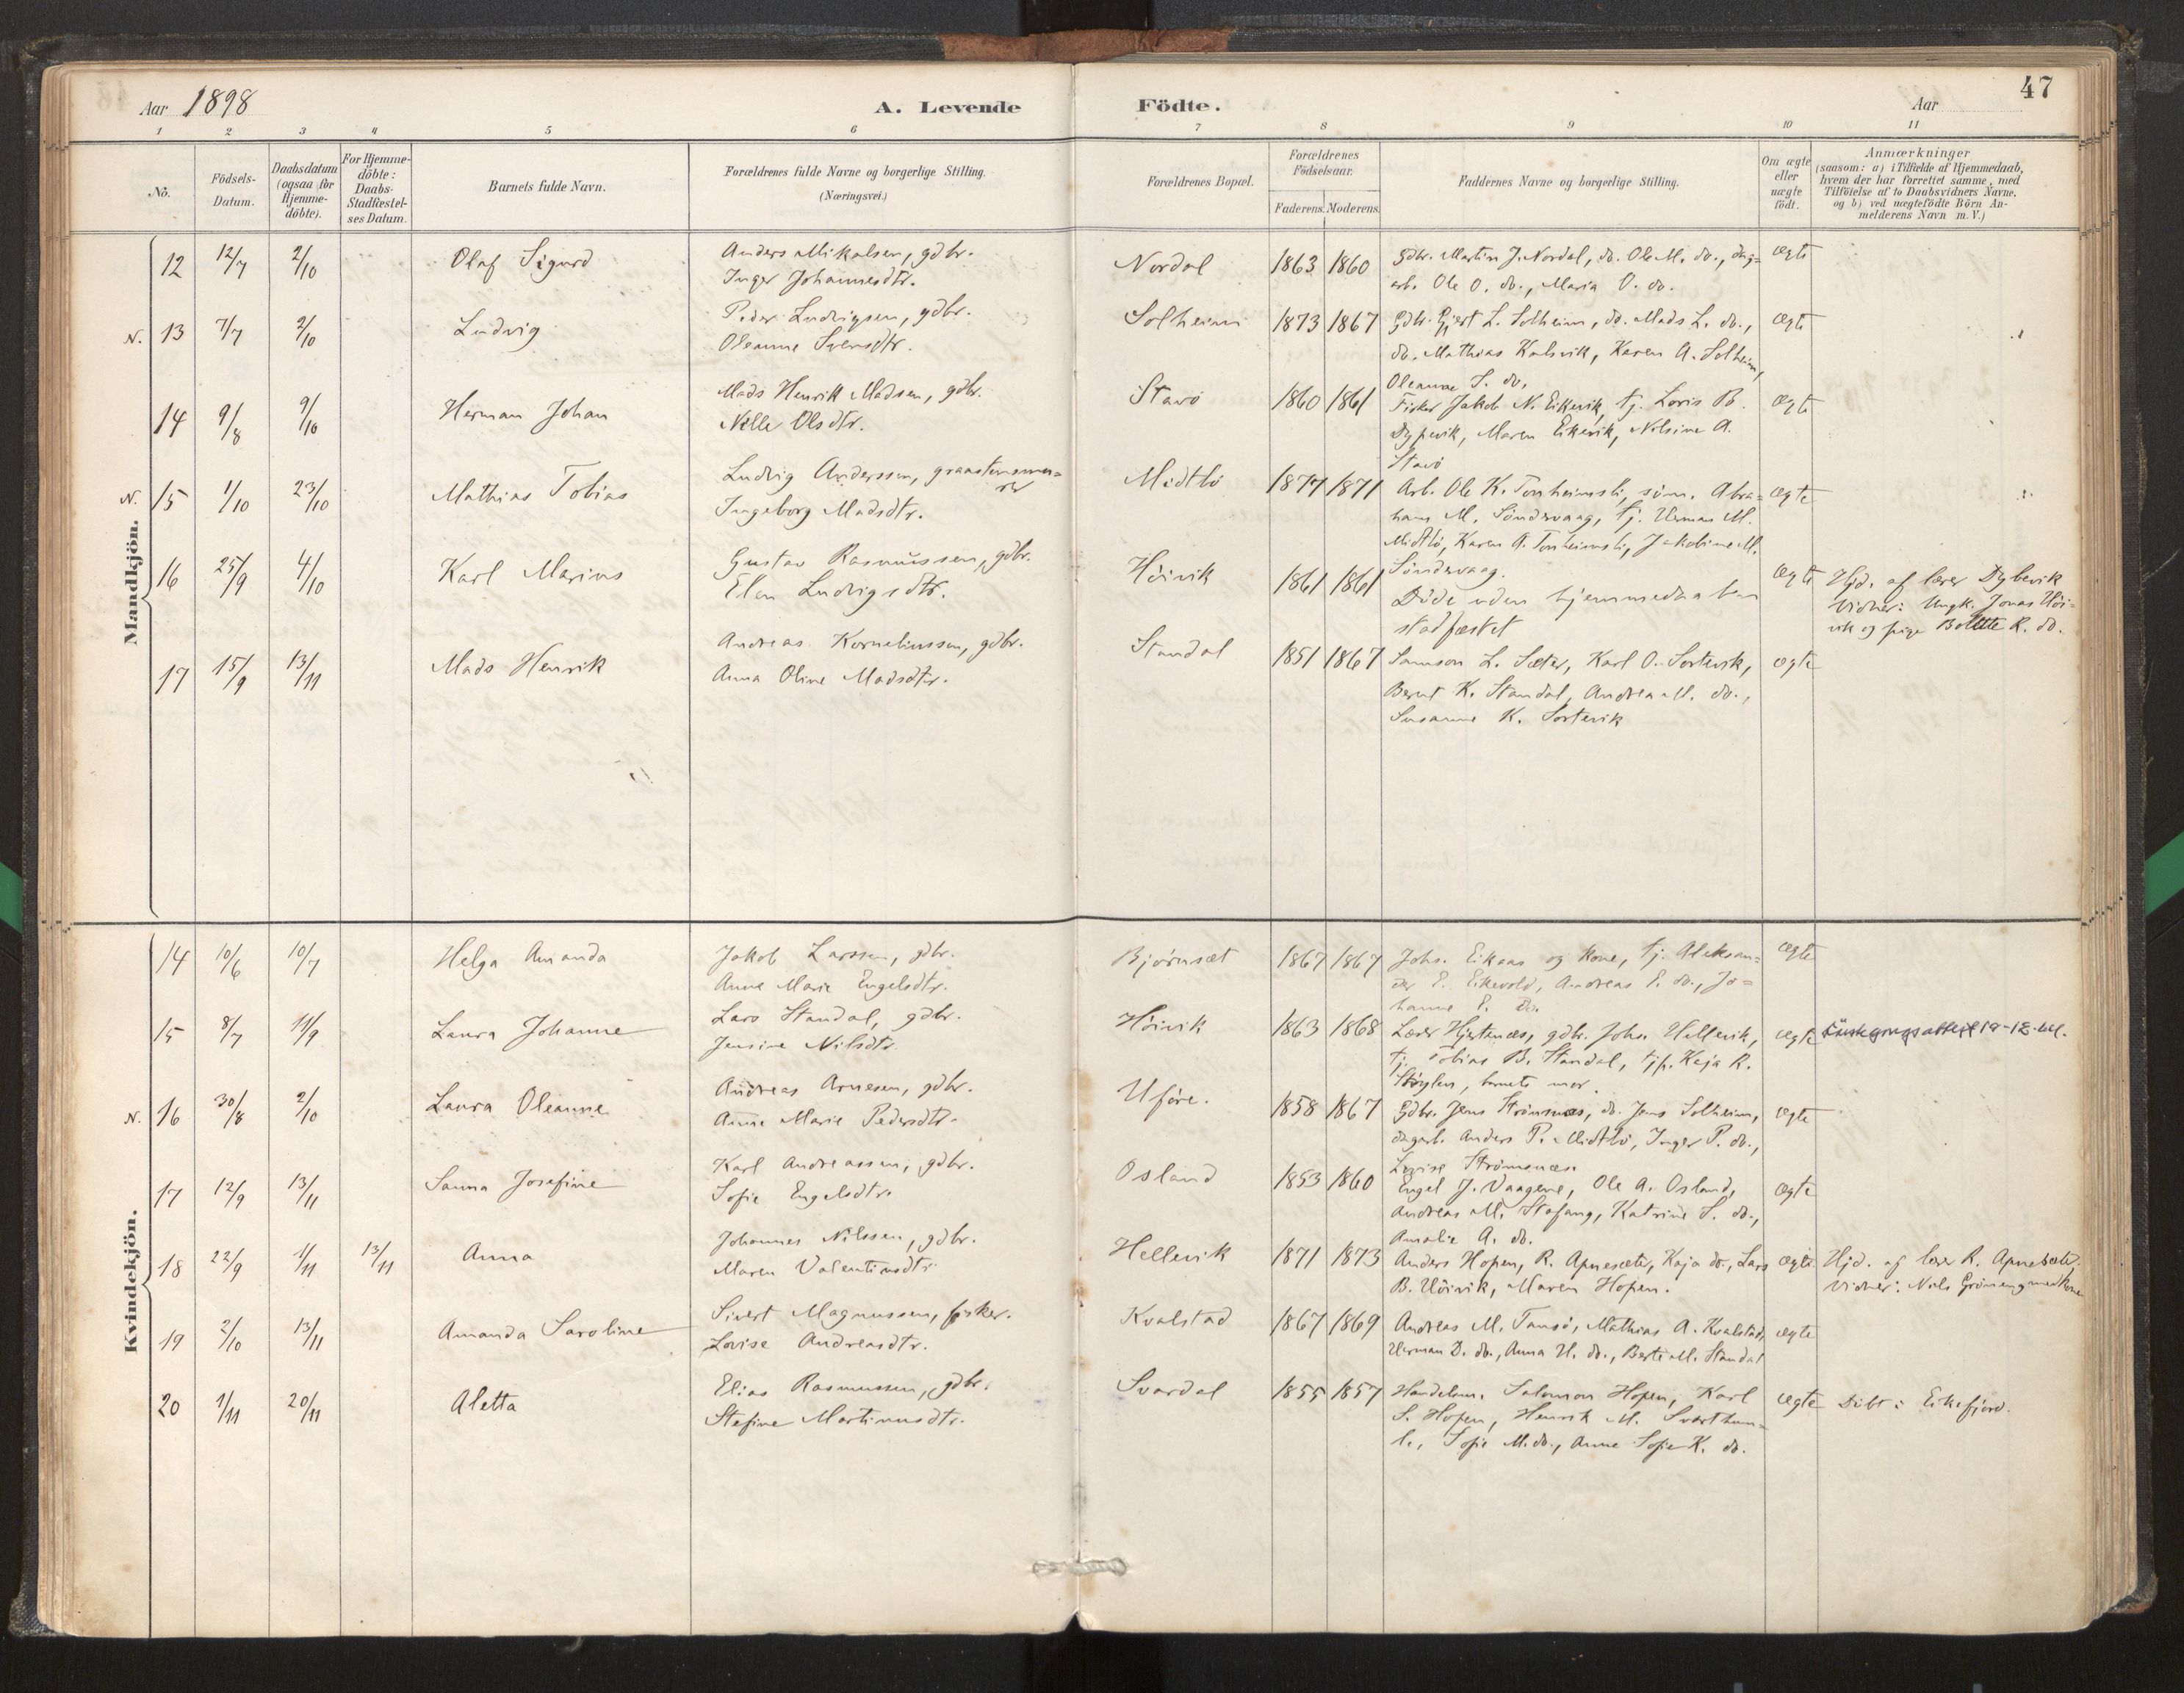 Aar 1898 A. Levende Födte. Aar 47
1 2 3 4 5 6 7 8 9 10 11
No.
Födsels-Datum.
Daabsdatum (ogsaa for Hjemme-döbte).
For Hjemme-döbte: Daabs-Stadfæstel-ses Datum.
Barnets fulde Navn.
Forældrenes fulde Navne og borgerlige Stilling.
(Næringsvei.)
Forældrenes Bopæl.
Forældrenes Födselsaar.
Faderens. Moderens.
Faddernes Navne og borgerlige Stilling.
Om ægte eller uægte födt.
Anmærkninger
(saasom: a) i Tilfælde af Hjemmedaab,
hvem der har forrettet samme, med
Tilföielse af to Daabsvidners Navne.
og b) ved uægtefödte Börn An-
melderens Navn m. V.)
Mandkjön.
12 12/7 2/10 Olaf Sigurd Anders Mikalsen, gdbr. Nordal 1863 1860 Gdbr. Martin J. Nordal, do. Ole M. do., dag= ægte
Inger Johannesdtr. arb. Ole O. do., Maria O. do.
N. 13 7/7 2/10 Ludvig Peder Ludvigsen, gdbr. Solheim 1873 1867 Gdbr. Gjert L. Solheim, do. Mads L. do., ægte
Oleanne Svensdtr. do. Mathias Kalsvik, Karen A. Solheim,
Oleanna S. do.
14 9/8 9/10 Herman Johan Mads Henrik Madsen, gdbr. Stavö 1860 1861 Fisker Jakob N. Eikevik, tj. Loris B. ægte
Nille Olsdtr. Dypevik, Maren Eikevik, Nilsine A.
Stavö
N. 15 1/10 23/10 Mathias Tobias Ludvig Anderssen, graastensmu= Midtbö 1877 1871 Arb. Ole K. Tonheimsli, söm. Abra= ægte
rer
Ingeborg Madsdtr. ham M. Söndervaag, tj. Herman M.
Midtbö, Karen A. Tonheimsli, Jakobine M.
Söndervaag.
16 25/9 4/10 Karl Marius Gustav Rasmussen, gdbr. Höivik 1861 1861 Döde uden hjemmedaaben ægte Hjd. af lærer Dybevik
Elen Ludvigsdtr. stadfæstet Vidner: Ungk. Jonas Höi-
vik og pige Bolette R. do.
17 15/9 13/11 Mads Henrik Andreas Korneliussen, gdbr. Standal 1851 1867 Samson L. Sæter, Karl O. Sortevik, ægte
Anna Oline Madsdtr. Bernt K. Standal, Andrea M. do.,
Susanne K. Sortevik
Kvindekjön.
14 10/6 10/7 Helga Amanda Jakob Larssen, gdbr. Björnsæt 1867 1867 Johs. Eikaas og kone, tj. Aleksan= ægte
Anne Marie Engelsdtr. der E. Eikevold, Andreas E. do., Jo=
hanne E. do.
15 8/7 11/9 Laura Johanne Lars Standal, gdbr. Höivik 1863 1868 Lærer Hjertenæs, gdbr. Johs. Hellevik, ægte
Jensine Nilsdtr. tj. Tobias B. Standal, tjp. Kaja R.
Stöylen, barnets mor.
N. 16 30/8 2/10 Laura Oleanne Andreas Arnesen, gdbr. Uföre. 1858 1867 Gdbr. Jens Strömsnæs, do. Jens Solheim, ægte
Anne Marie Pedersdtr. dagarb. Anders P. Midtbö, Inger P. do.,
Lovise Strömsnæs.
17 12/9 13/11 Sanna Josefine Karl Andreassen, gdbr. Osland 1853 1860 Engel J. Vaagene, Ole A. Osland, ægte
Sofie Engelsdtr. Andreas M. Stafang, Katrine S. do.,
Amalie A. do.
18 22/9 1/11 13/11 Anna Johannes Nilssen, gdbr. Hellevik 1871 1873 Anders Hopen, R. Apnesæter, Kaja do., Lars ægte Hjd. af lærer R. Apnesæter.
Maren Valentinsdtr. B. Höivik, Maren Hopen. Vidner: Nils Gröneng med kone
19 2/10 13/11 Amanda Saroline Sivert Magnussen, fisker. Kvalstad 1867 1869 Andreas M. Tansö, Mathias A. Kvalstad, ægte
Lovise Andreasdtr. Herman D. do., Anna H. do., Berte M. Standal
20 1/11 20/11 Aletta Elias Rasmussen, gdbr. Svardal 1855 1857 Handelsm. Salomon Hopen, Karl ægte Döbt i Eikefjord.
Stefine Martinusdtr. S. Hopen, Henrik M. Svarthum=
le, Sofie M. do., Anne Sofie K. do.